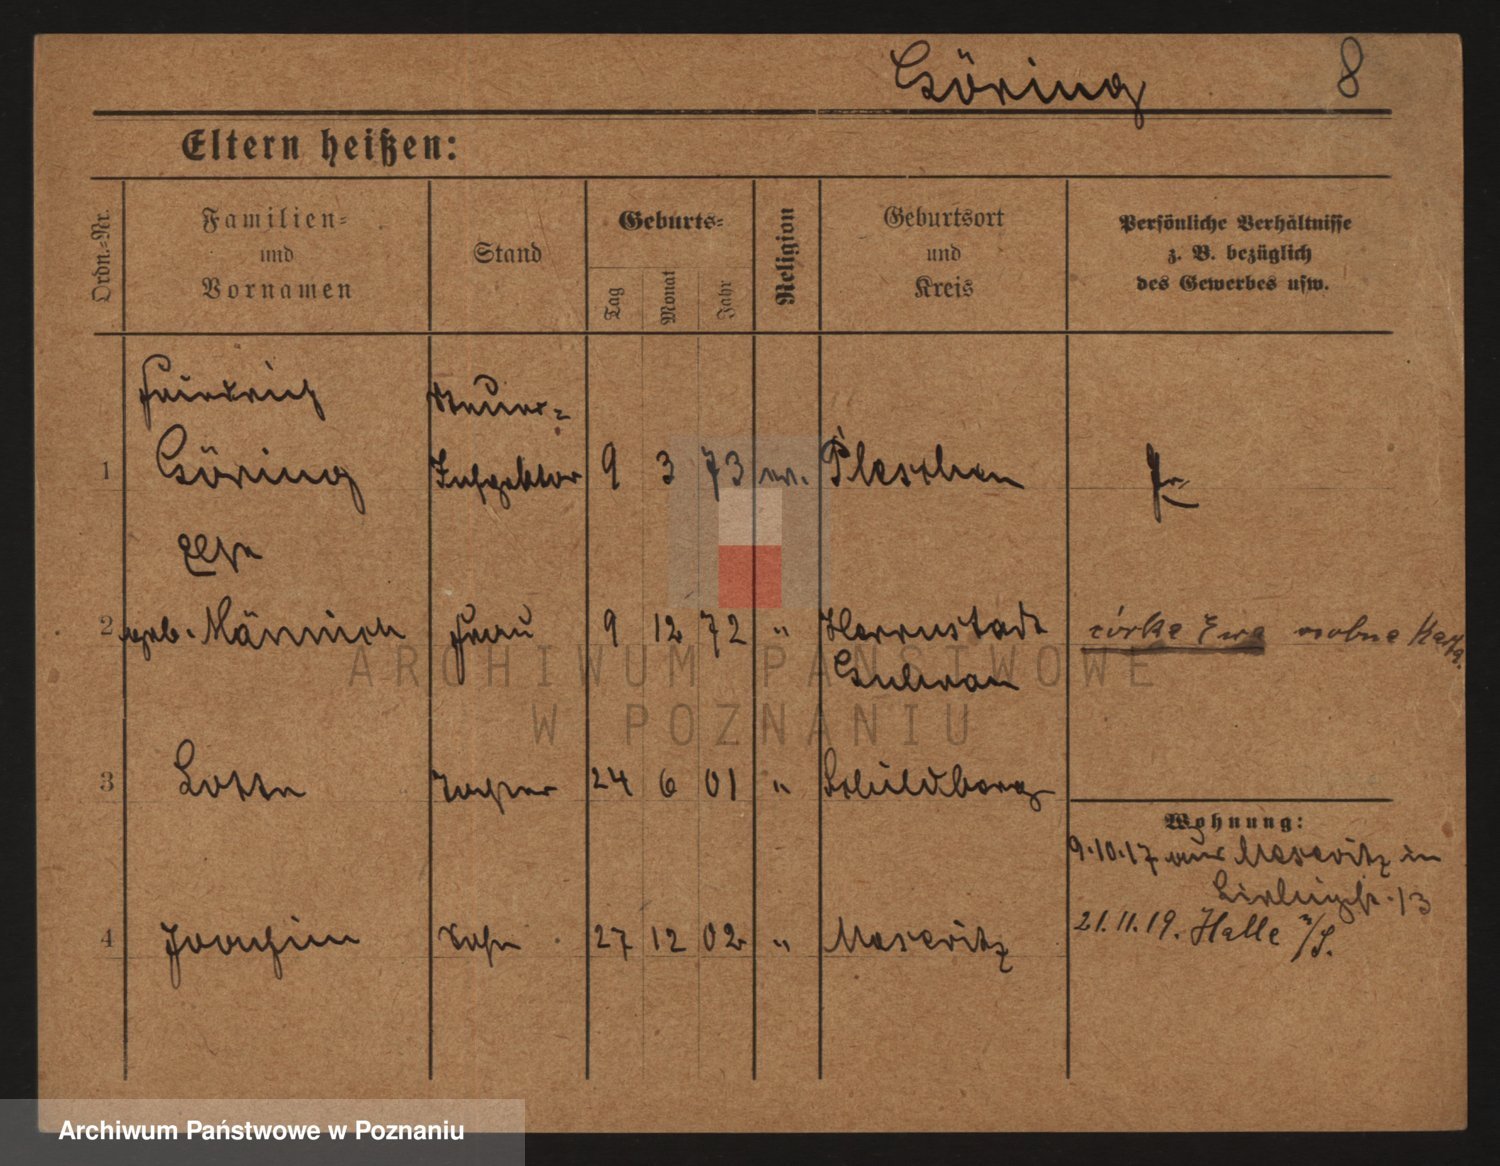 Göring 8
Eltern heißen:
Ordn.-Nr.
Familien-
und
Vornamen
Stand
Geburts-
Tag
Monat
Jahr
Religion
Geburtsort
und
Kreis
Persönliche Verhältnisse
z. B. bezüglich
des Gewerbes usw.
Friedrich Steuer-
1 Göring Inspektor 9 3 73 ev. Pleschen Pr.
Else
2 geb. Männich Frau 9 12 72 " Herrnstadt córka Ewa osobna Karta.
Guhrau
3 Lotte Tochter 24 6 01 " Schildberg
Wohnung:
9.10.17 aus Meseritz in
13
4 Joachim Sohn 27 12 02 " Meseritz
21.11.19. Halle a/S.
ARCHIWUM PAŃSTWOWE
W POZNANIU
Archiwum Państwowe w Poznaniu